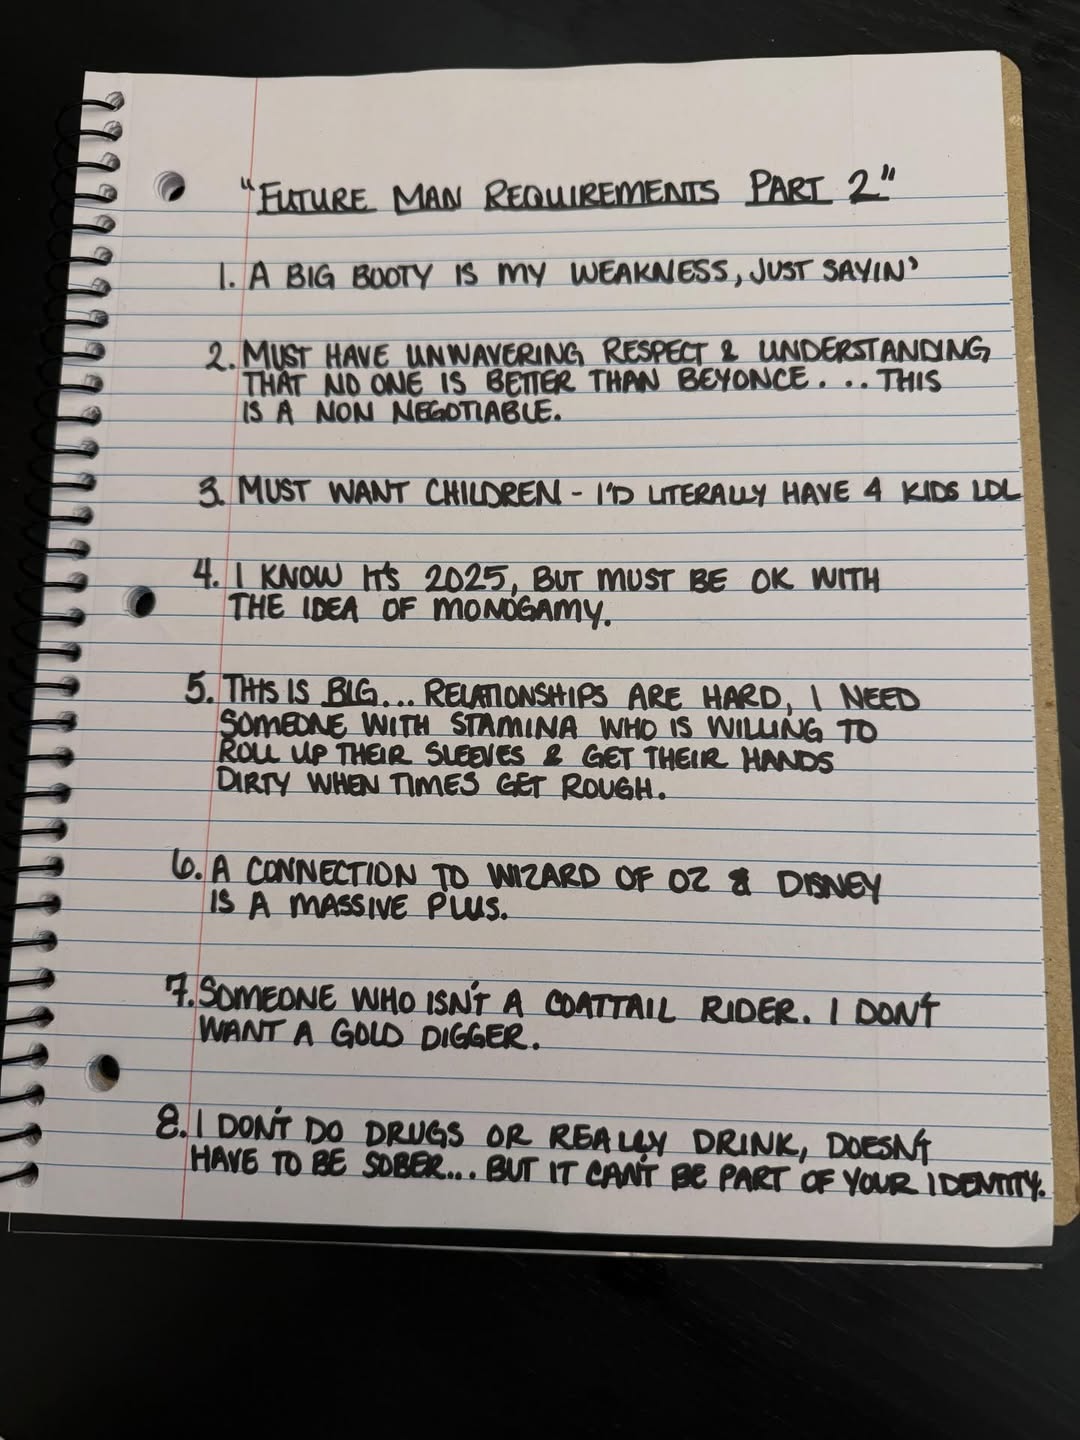 "FUTURE MAN REQUIREMENTS PART 2"
1. A BIG BOOTY IS MY WEAKNESS, JUST SAYIN'
2. MUST HAVE UNWAVERING RESPECT & UNDERSTANDING
THAT NO ONE IS BETTER THAN BEYONCE. . . THIS
IS A NON NEGOTIABLE.
3. MUST WANT CHILDREN - I'D LITERALLY HAVE 4 KIDS LOL
4. I KNOW IT'S 2025, BUT MUST BE OK WITH
THE IDEA OF MONOGAMY.
5. THIS IS BIG... RELATIONSHIPS ARE HARD, I NEED
SOMEONE WITH STAMINA WHO IS WILLING TO
ROLL UP THEIR SLEEVES & GET THEIR HANDS
DIRTY WHEN TIMES GET ROUGH.
6. A CONNECTION TO WIZARD OF OZ & DISNEY
IS A MASSIVE PLUS.
7. SOMEONE WHO ISN'T A COATTAIL RIDER. I DON'T
WANT A GOLD DIGGER.
8. I DON'T DO DRUGS OR REALLY DRINK, DOESN'T
HAVE TO BE SOBER... BUT IT CAN'T BE PART OF YOUR IDENTITY.